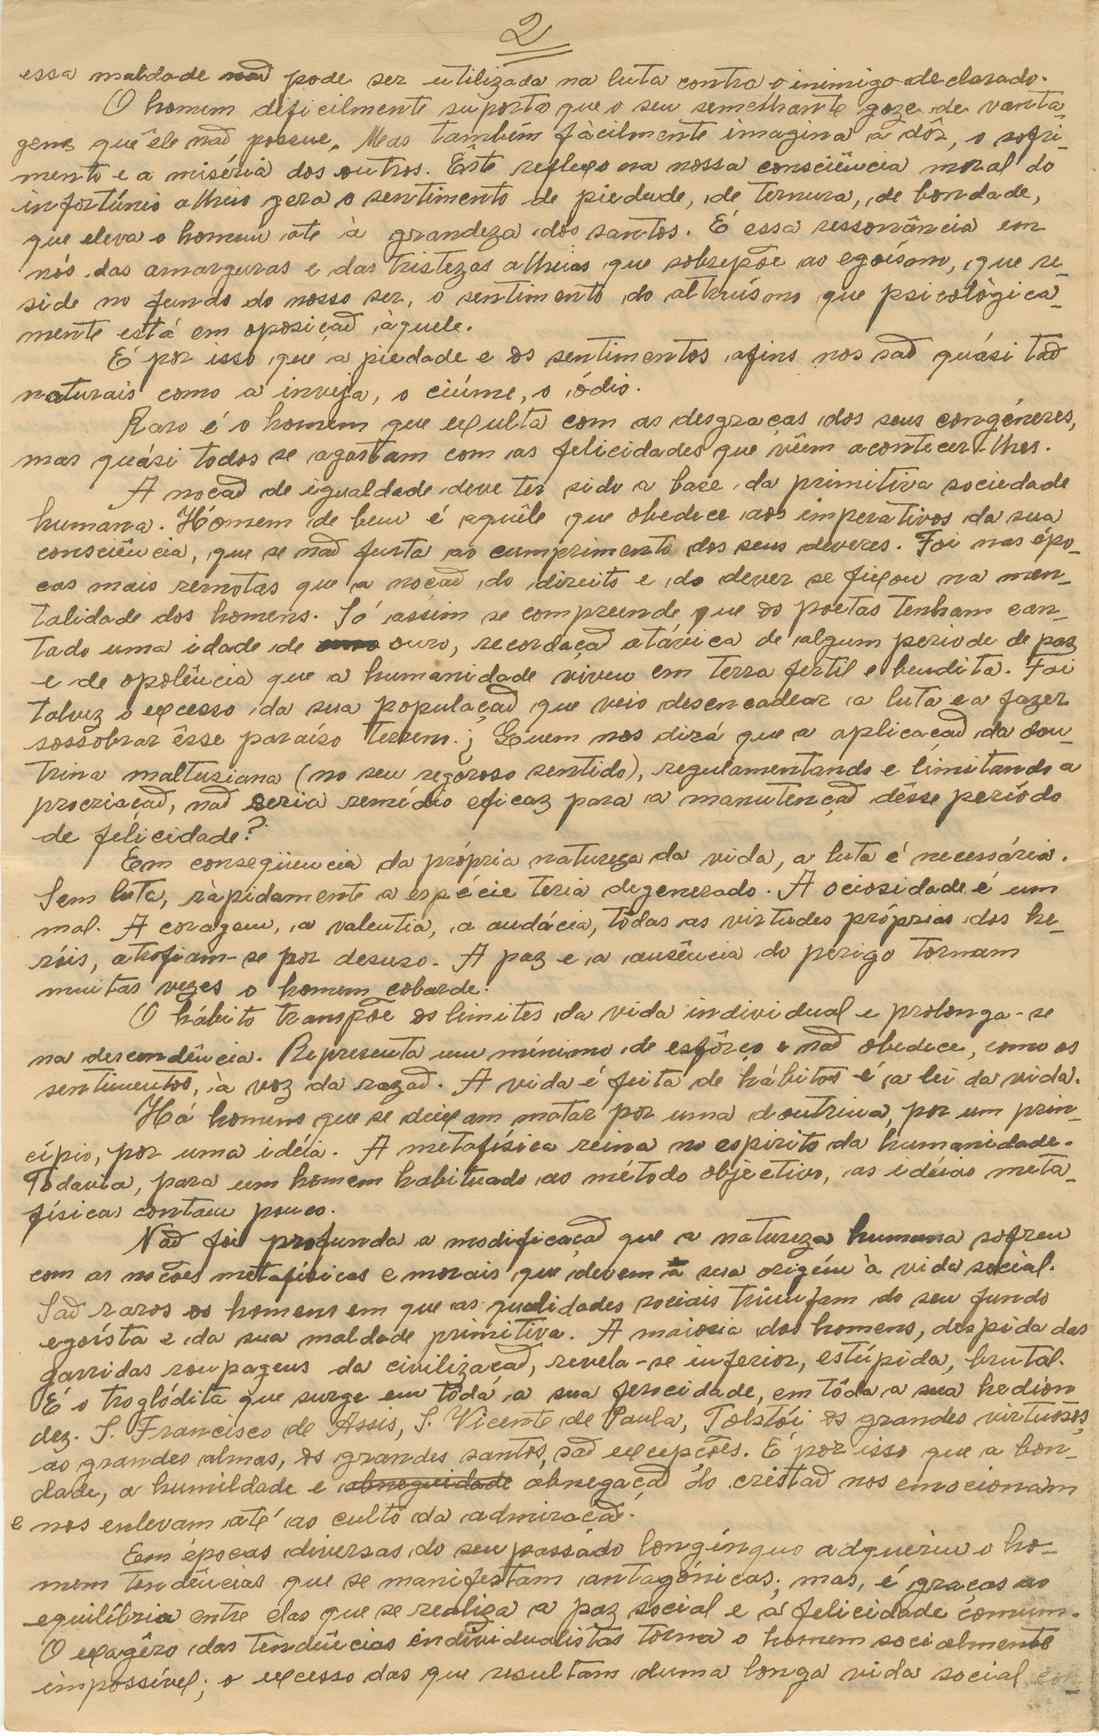 2
essa maldade não pode ser utilizada na luta contra o inimigo declarado.
O homem dificilmente suporta que o seu semelhante goze de vanta-
gens que êle não possue. Mas também fàcilmente imagina a dôr, o sofri-
mento e a miséria dos outros. Êste reflexo na nossa consciência moral do
infortúnio alheio gera o sentimento de piedade, de ternura, de bondade,
que eleva o homem até à grandeza dos santos. É essa ressonância em
nós das amarguras e das tristezas alheias que sobrepõe ao egoísmo, que re-
side no fundo do nosso ser, o sentimento do altruísmo que psicològica-
mente está em oposição àquele.
É por isso que a piedade e os sentimentos afins nos são quási tão
naturais como a inveja, o ciúme, o ódio.
Raro é o homem que exulta com as desgraças dos seus congéneres,
mas quási todos se agastam com as felicidades que vêem acontecer-lhes.
A noção de igualdade deve ter sido a base da primitiva sociedade
humana. Homem de bem é aquêle que obedece aos imperativos da sua
consciência, que se não furta ao cumprimento dos seus deveres. Foi nas épo-
cas mais remotas que a noção do direito e do dever se fixou na men-
talidade dos homens. Só assim se compreende que os poetas tenham can-
tado uma idade de ouro, recordação atávica de algum periodo de paz
e de opolência que a humanidade viveu em terra fertil e bendita. Foi
talvez o excesso da sua população que veio desencadear a luta e a fazer
sossobrar êsse paraíso terreno. ¿Quem nos dirá que a aplicação da dou-
trina maltusiana (no seu regoroso sentido), regulamentando e limitando a
procriação, não seria remédio eficaz para a manutenção dêsse período
de felicidade?
Em conseqüencia da própria natureza da vida, a luta é necessária.
Sem luta, ràpidamente a espécie teria degenerado. A ociosidade é um
mal. A coragem, a valentia, a audácia, tôdas as virtudes próprias dos he-
róis, atrofiam-se por desuso. A paz e a ausência do perigo tornam
muitas vezes o homem cobarde.
O hábito transpõe os limites da vida individual e prolonga-se
na descendência. Representa um mínimo de esfôrço e não obedece, como os
sentimentos, à voz da razão. A vida é feita de hábitos é a lei da vida.
Há homens que se deixam matar por uma doutrina, por um prin-
cípio, por uma idéia. A metafísica reina no espirito da humanidade.
Todavia, para um homem habituado ao método objectivo, as idéias meta-
físicas contam pouco.
Não foi profunda a modificação que a natureza humana sofreu
com as noções metafísicas e morais que devem a sua origem à vida social.
São raros os homens em que as qualidades sociais triunfam do seu fundo
egoísta e da sua maldade primitiva. A maioria dos homens, despida das
garridas roupagens da civilização, revela-se inferior, estúpida, brutal.
É o troglódita que surge em tôda a sua ferocidade, em tôda a sua hedion
dez. S. Francisco de Assis, S. Vicente de Paula, Tolstói os grandes virtuosos,
as grandes almas, os grandes santos, são excepções. É por isso que a bon-
dade, a humildade e abneguidade abnegação do cristão nos emocionam
e nos enlevam até ao culto da admiração.
Em épocas diversas do seu passado longínquo adquiriu o ho-
mem tendências que se manifestam antagónicas; mas, é graças ao
equilíbrio entre elas que se realiza a paz social e a felicidade comum.
O exagêro das tendências individualistas torna o homem socialmente
impossível; o excesso das que resultam duma longa vida social